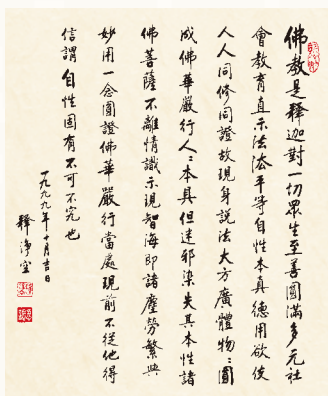 佛教是釋迦對一切眾生至善圓滿多元社
會教育直示法法平等自性本真德用欲使
人人同修同證故現身說法大方廣體物物圓
成佛華嚴行人人本具但迷邪染失其本性諸
佛菩薩不離情識示現智海即諸塵勞繁興
妙用一念圓證佛華嚴行當處現前不從他得
信謂自性固有不可不究也
一九九九年十月吉日
釋淨空